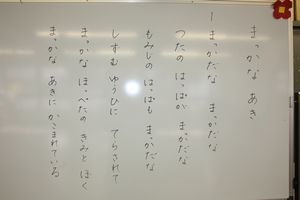 まっかな あき
1 まっかだな まっかだな
つたの はっぱが まっかだな
もみじの はっぱも まっかだな
しずむ ゆうひに てらされて
まっかな ほっぺたの きみと ぼく
まっかな あきに かこまれている